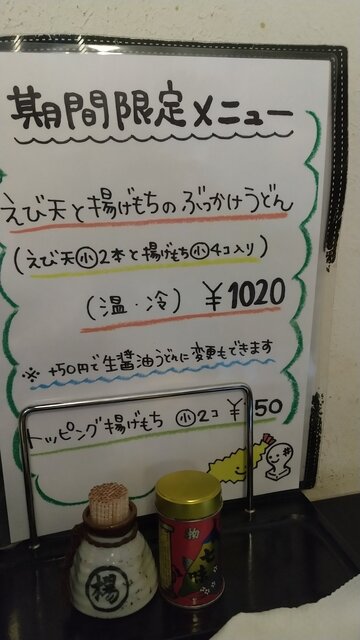 期間限定メニュー
えび天と揚げもちのぶっかけうどん
(えび天小2本と揚げもち小4コ入り)
(温・冷) ¥1020
※ +50円で生醤油うどんに変更もできます
トッピング揚げもち 小2コ ¥150
楊
七味